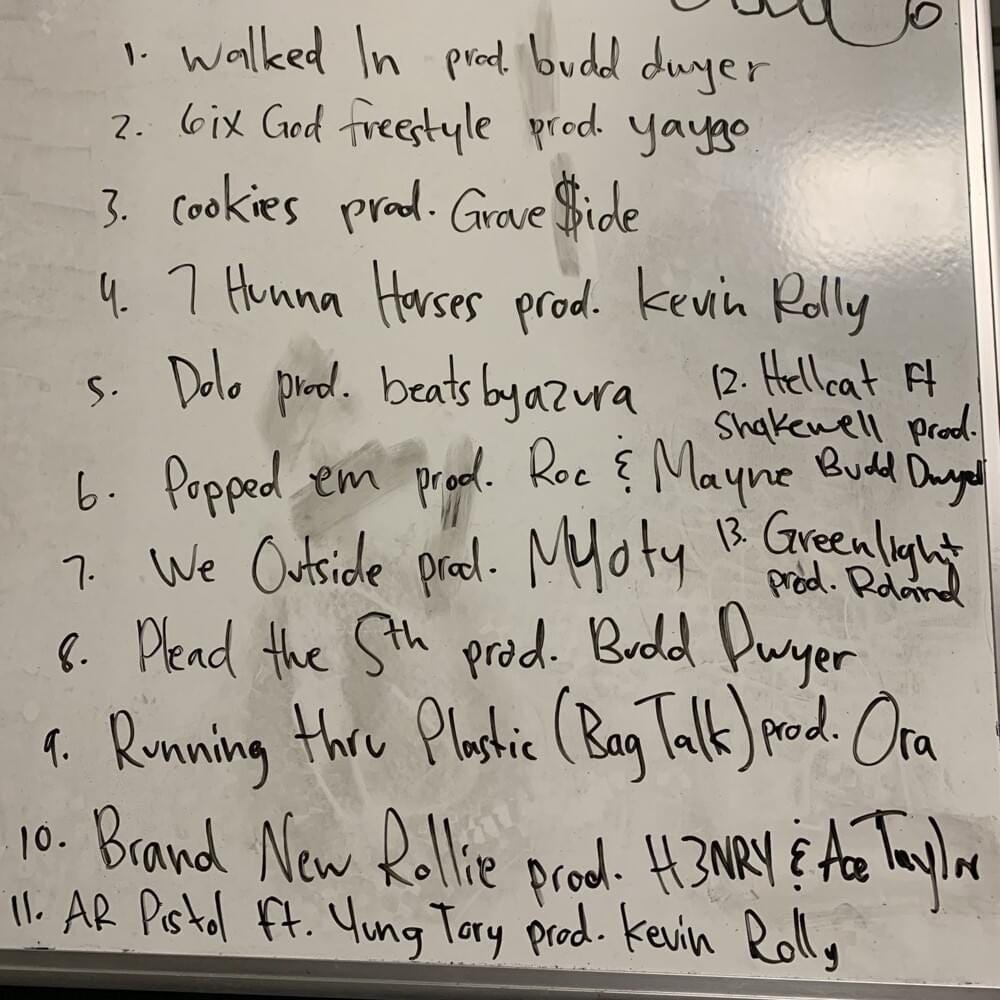 1. Walked In prod. budd dwyer
2. 6ix God freestyle prod. yaygo
3. cookies prod. Grave $ide
4. 7 Hunna Horses prod. kevin Rolly
5. Dolo prod. beatsbyazura
6. Popped em prod. Roc & Mayne
7. We Outside prod. MYoty
8. Plead the 5th prod. Budd Dwyer
9. Running thru Plastic (Bag Talk) prod. Ora
10. Brand New Rollie prod. H3NRY & Ace Taylor
11. AR Pistol ft. Yung Tory prod. kevin Rolly
12. Hellcat ft
Shakewell prod.
Budd Dwyer
13. Greenlight
prod. Roland